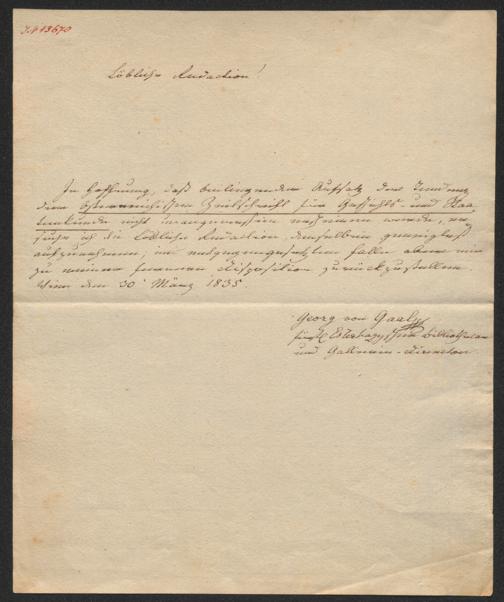 J.N 43670
Löbliche Redaction!
In Hoffnung, daß beiliegender Aufsatz der Tendenz
der österreichischen Zeitschrift für Geschichts- und Staa-
tenkunde nicht unangemessen erscheinen werde, er-
suche ich die Löbliche Redaction, denselben geneigtest
aufzunehmen; im entgegengesetzten Falle aber mir
zu meiner ferneren Disposition zurückzustellen.
Wien den 30t März 1835
Georg von Gaal
fürstl. Esterhazyscher Bibliothekar
und Gallerie-Director